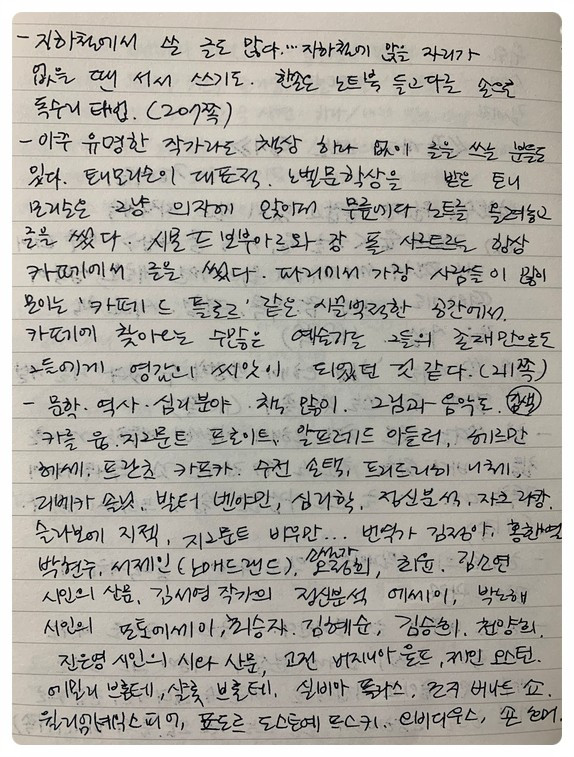 - 지하철에서 쓴 글도 많다... 지하철에 앉을 자리가
없을 땐 서서 쓰기도. 한손은 노트북 들고 다른 손으로
독수리 타법. (207쪽)
- 아주 유명한 작가라도 책상 하나 없이 글을 쓰는 분들도
있다. 토니모리슨이 대표적. 노벨문학상을 받은 토니
모리슨은 그냥 의자에 앉아서 무릎에다 노트를 올려놓고
글을 썼다. 시몬 드 보부아르와 장 폴 사르트르는 항상
카페에서 글을 썼다. 파리에서 가장 사람들이 많이
모이는 '카페 드 플로르' 같은 시끌벅적한 공간에서.
카페에 찾아오는 수많은 예술가들 그들의 존재만으로도
그들에게 영감의 씨앗이 되었던 것 같다. (211쪽)
- 문학·역사·심리분야 책도 많이. 그림과 음악도. 검색
카를 융, 지그문트 프로이트, 알프레드 아들러, 헤르만
헤세, 프란츠 카프카. 수전 손택, 프리드리히 니체,
리베카 솔닛, 발터 벤야민, 심리학, 정신분석, 자크 라캉,
슬라보예 지젝, 지그문트 바우만... 번역가 김정아, 홍한별
박현주, 서제인 (노매드랜드), 오정희, 최윤, 김소연
시인의 산문, 김서영 작가의 정신분석 에세이, 박노해
시인의 포토에세이, 최승자. 김혜순, 김승희, 천양희,
진은영 시인의 시와 산문, 고전 버지니아 울프, 제인 오스틴.
에밀리 브론테, 샬롯 브론테, 실비아 플라스, 조지 버나드 쇼.
윌리엄 셰익스피어, 표도르 도스토예프스키. 오비디우스,